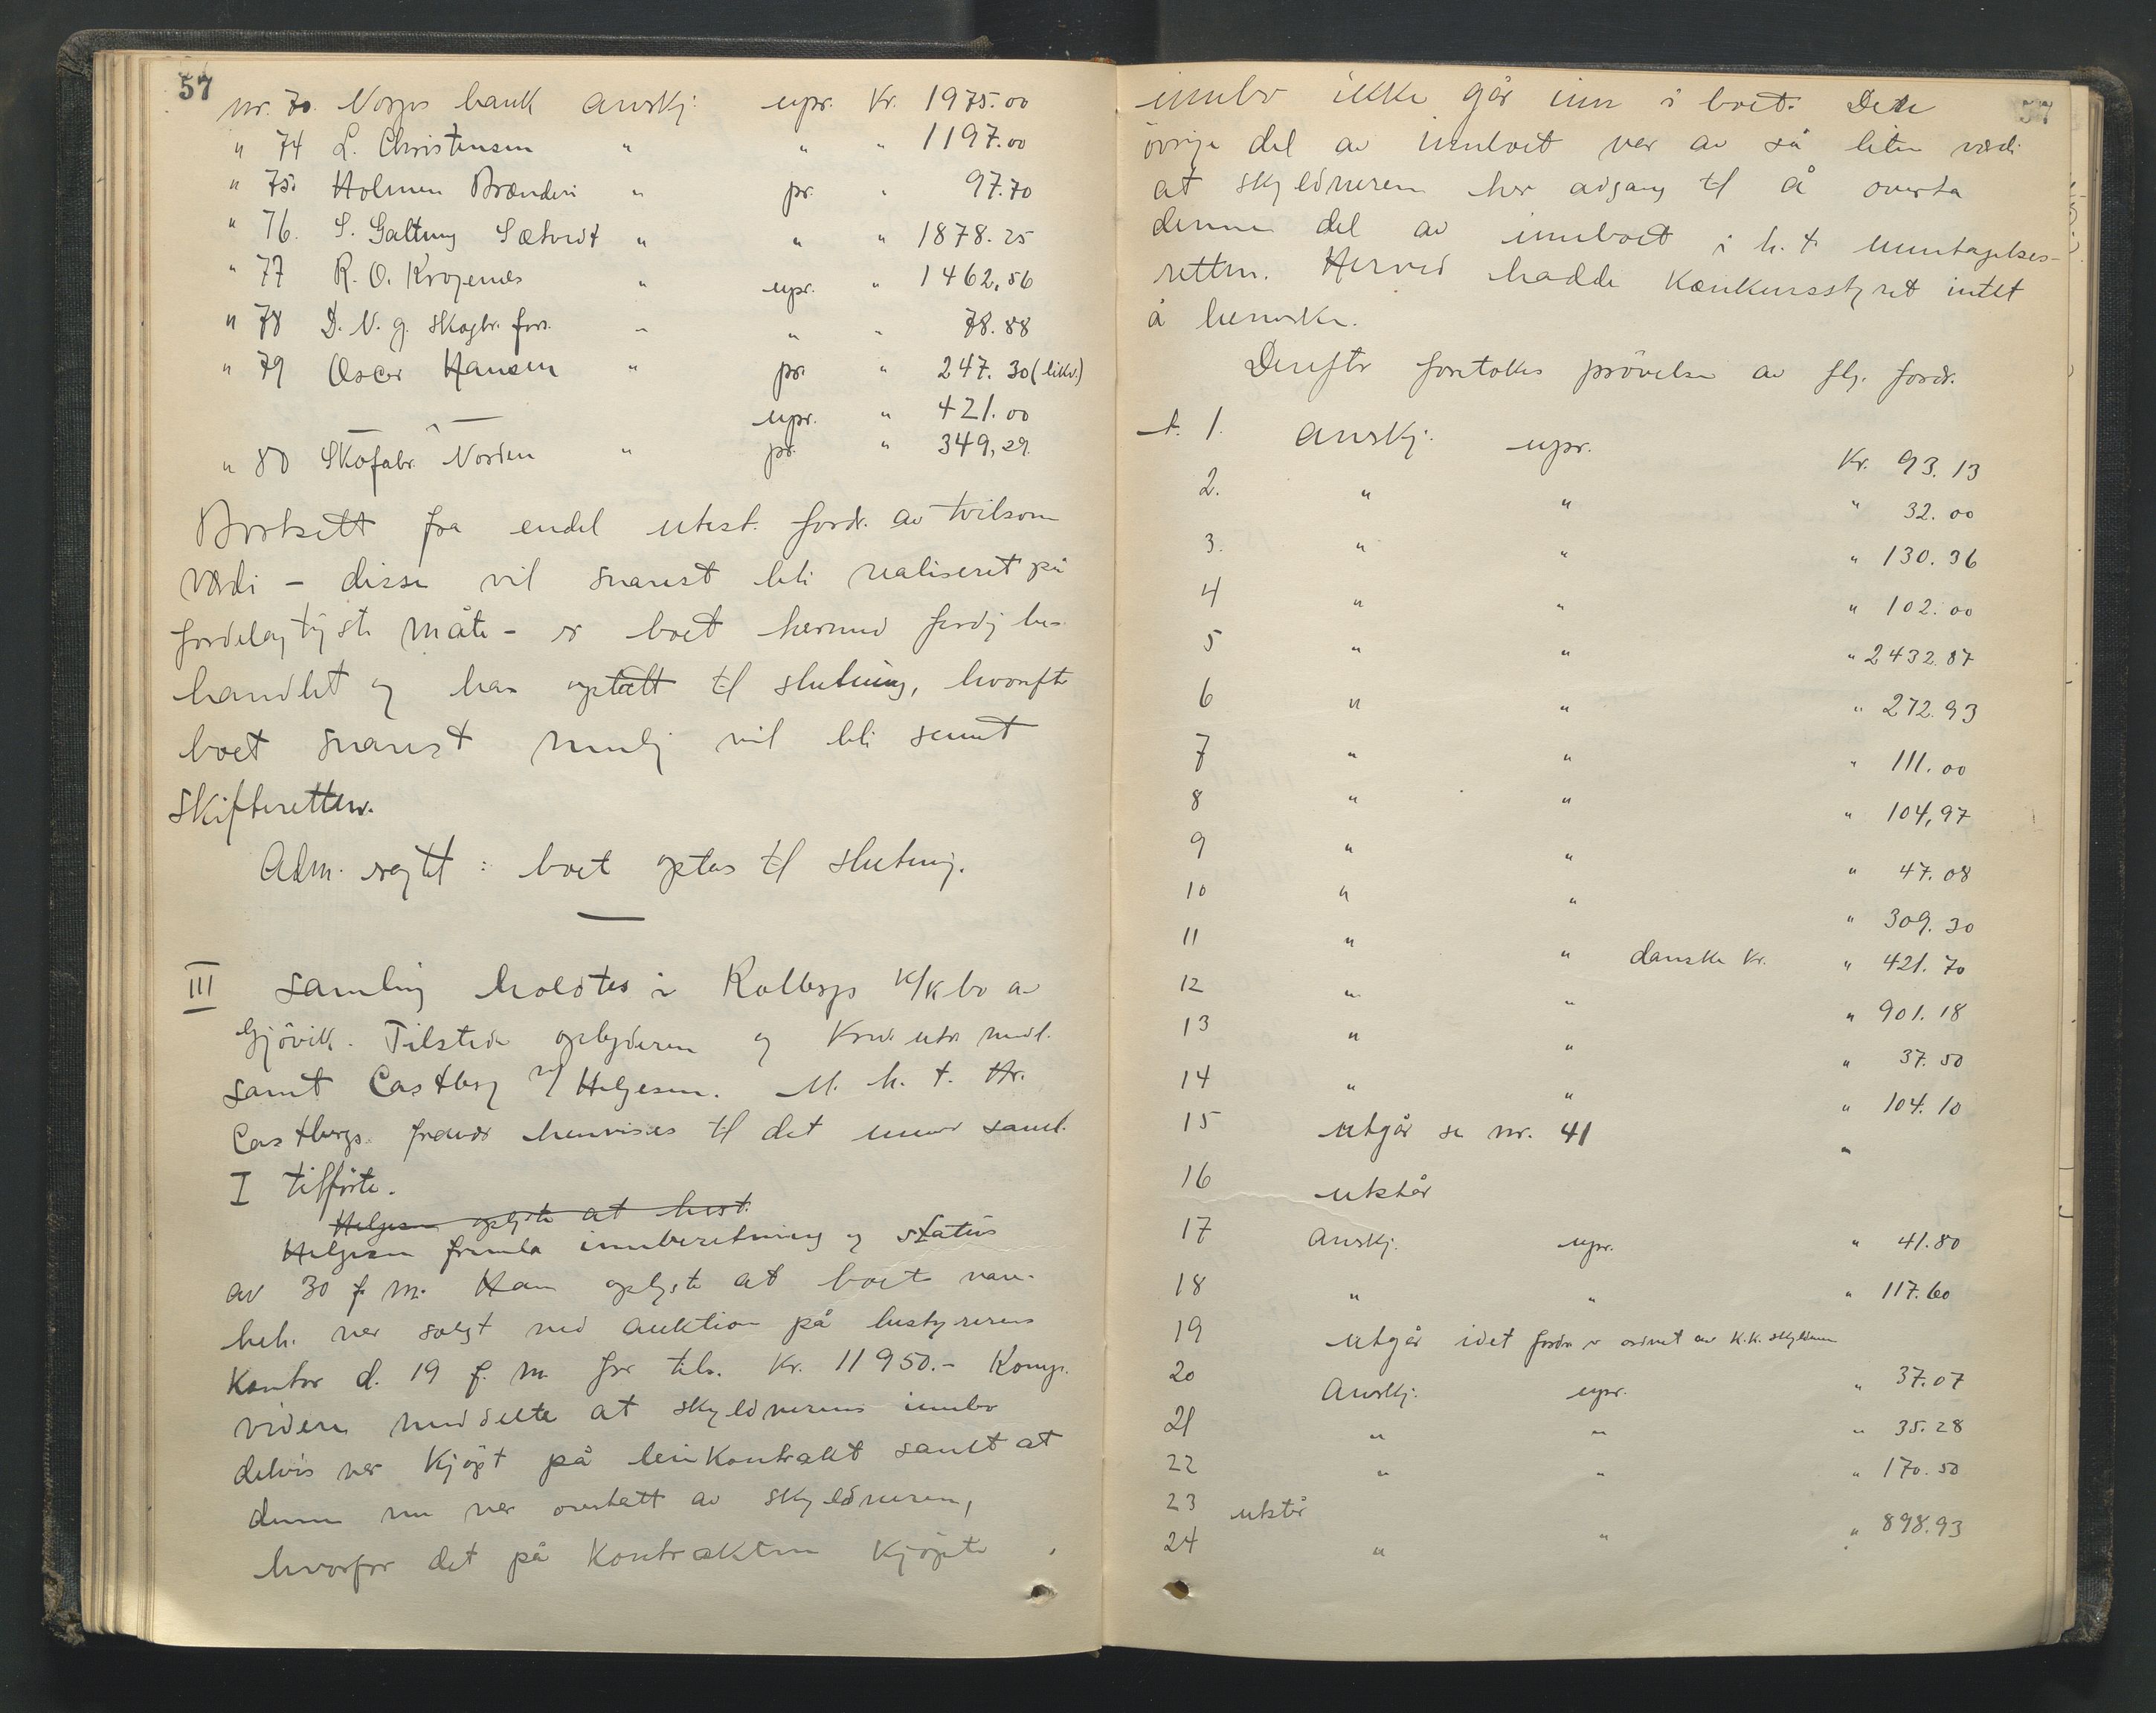 57
nr. 70. Norges bank anerkj: upr. Kr. 1975.00
" 74 L. Christensen " " " 1197.00
" 75. Holmen Brænderi " pr. " 97.70
" 76. S. Galtung Sætveit " " " 1878.25
" 77 R. O. Krogenæs " upr. " 1462,56
" 78 D. N. g. Skogbr. fors. " " " 78.88
" 79 Oscar Hansen " pr. " 247.30 (likv.)
upr. " 421.00
" 80 Skofabr. Norden " pr. " 349,29
Bortsett fra endel utest. fordr. av tvilsom
værdi - disse vil snarest bli realiseret på
fordelagtigste måte - er boet hermed ferdig be-
handlet og kan optatt til slutning, hvorefter
boet snarest mulig vil bli sennt
Skifteretten.
Adm. rejst: boet optas til slutning.
III Samling holdtes i Kolbergs K/K bo av
Gjövik. Tilstede opbyderen og Kred. utv. medl.
samt Castberg v/ Helgesen. M. h. t. Hr.
Castbergs fravær henvises til det under saml.
I tilførte.
Helgesen oplyste at best.
Helgesen fremla innberetning og status
av 30 f. m. Han oplyste at boets vare-
beh. var solgt ved auktion på bestyrerens
Kontor d. 19 f. m. for tils. Kr. 11950.- Komp.
videre meddelte at skyldnerens innbo
delvis var kjöpt på leiekontrakt samt at
denne nu var overtatt av skyldneren,
hvorfor det på Kontrakten kjöpte
57
innbo ikke går inn i boet. Den
övrige del av innboet var av så liten værdi
at skyldneren har adgang til å overta
denne del av innboet i h. t. unntagelses-
retten. Herved hadde konkursstyret intet
å bemerke.
Derefter foretokes prövelse av flg. fordr.
t. 1. Anerkj. upr. Kr. 93.13
2. " " " 32.00
3. " " " 130.36
4 " " " 102.00
5 " " " 2432.87
6 " " " 272.93
7 " " " 111.00
8 " " " 104,97
9 " " " 47.08
10 " " " 309.30
11 " " danske Kr. " 421.70
12 " " " 901.18
13 " " " 37.50
14 " " " 104.10
15 utgår se nr. 41 "
16 utstår
17 Anerkj. upr. " 41.80
18 " " " 117.60
19 utgår idet fordr. er ordnet av K.K. skyldner
20 Anerkj. upr. " 37.07
21 " " " 35.28
22 " " " 170.50
23 utstår
24 " " " 898.93